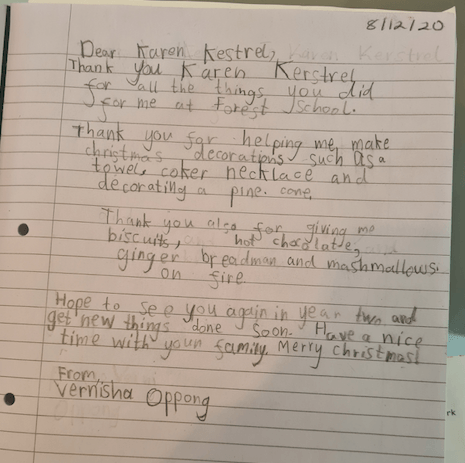 8/12/20
Dear Karen Kestrel,
Thank you Karen Kerstrel
for all the things you did
for me at forest school.
Thank you for helping me make
christmas decorations such as a
towel, coker necklace and
decorating a pine cone
Thank you also for giving me
biscuits, hot chocolate,
ginger breadman and mashmallows
on fire
Hope to see you again in year two and
get new things done soon. Have a nice
time with your family. Merry christmas!
From
Vernisha Oppong
rk